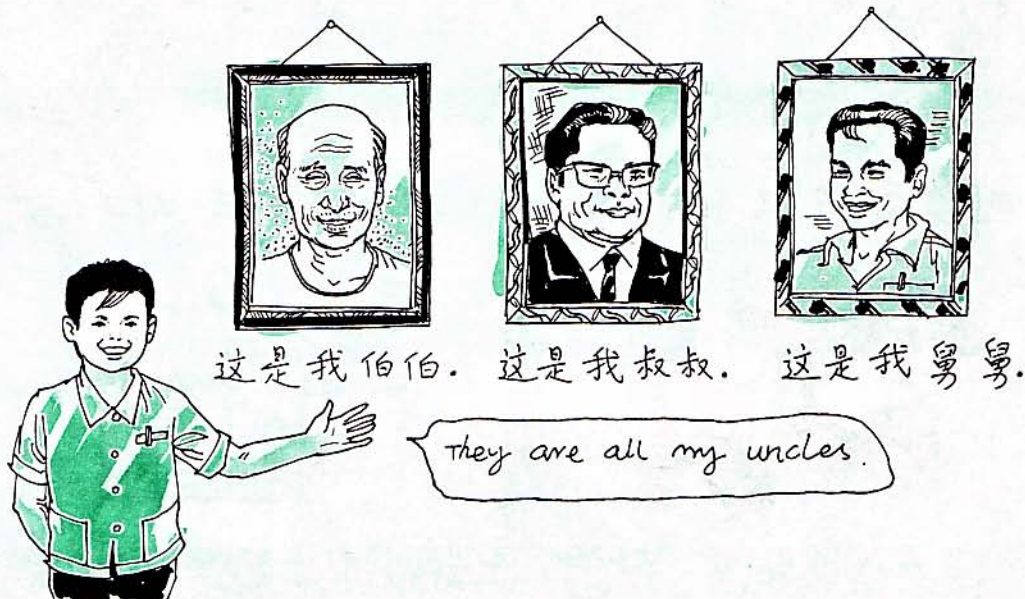 这是我伯伯. 这是我叔叔. 这是我舅舅.
They are all my uncles.